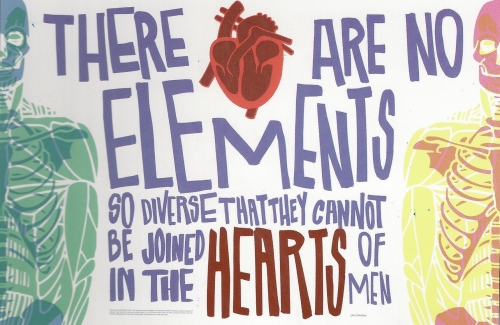 THERE ARE NO
ELEMENTS
SO DIVERSE THAT THEY CANNOT
BE JOINED HEARTS OF
IN THE MEN